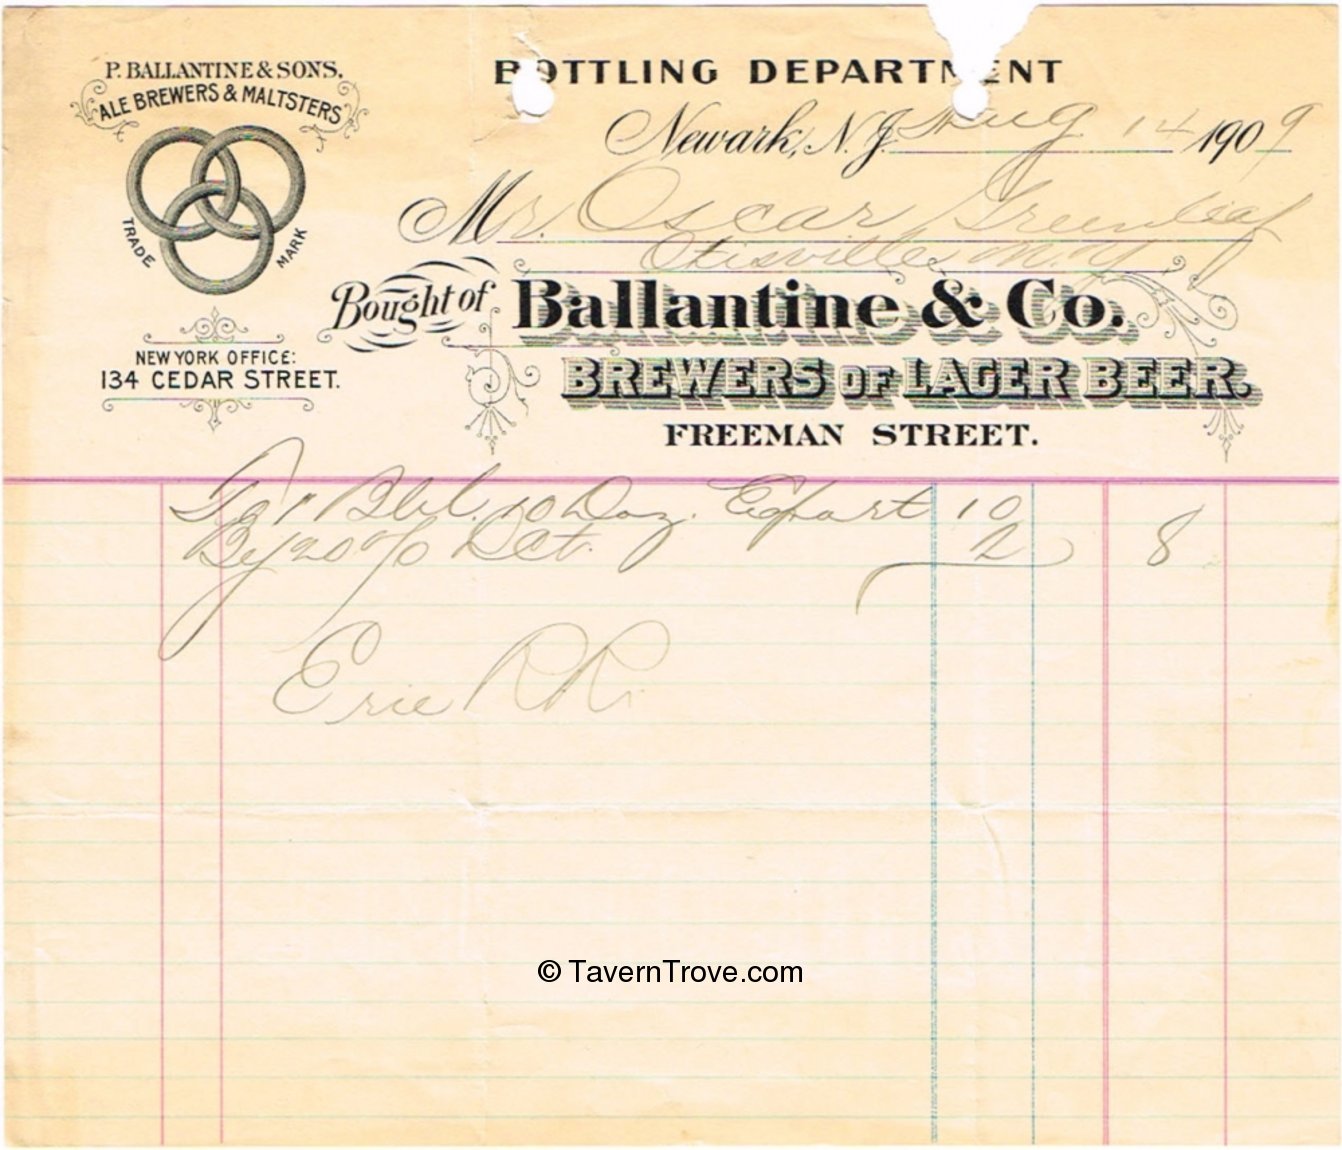 P. BALLANTINE & SONS.
ALE BREWERS & MALTSTERS
TRADE MARK
NEW YORK OFFICE:
134 CEDAR STREET.
BOTTLING DEPARTMENT
Newark, N.J. Aug 14 1909
Mr. Oscar Greenleaf
Otisville N.Y.
Bought of Ballantine & Co.
BREWERS OF LAGER BEER.
FREEMAN STREET.
To 1 Bbl. 10 Doz. Export 10
By 20% Dct. 2 8
Erie R.R.
© TavernTrove.com